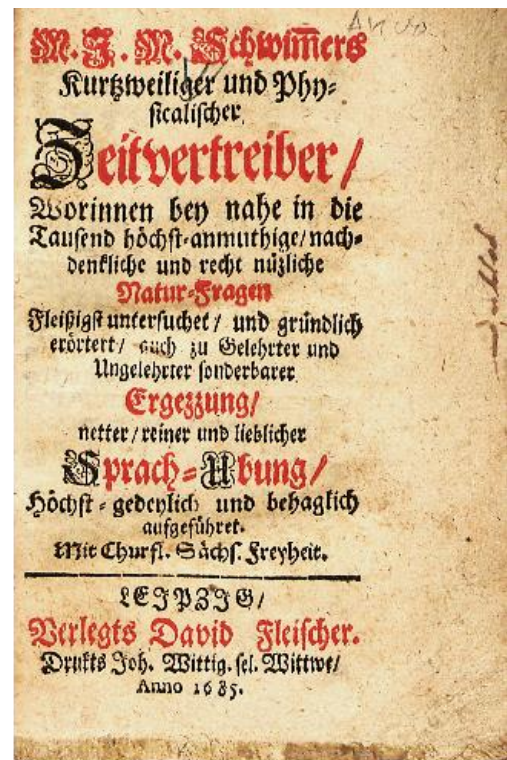 M. J. M. Schwim̅ers
Kurtzweiliger und Phy-
sicalischer
Zeitvertreiber/
Worinnen bey nahe in die
Tausend höchst-anmuthige/nach-
denkliche und recht nüzliche
Natur-Fragen
Fleißigst untersuchet/ und gründlich
erörtert/ auch zu Gelehrter und
Ungelehrter sonderbarer
Ergezzung/
netter/reiner und lieblicher
Sprach-Ubung/
Höchst-gedeylich und behaglich
aufgeführet.
Mit Churfl. Sächs. Freyheit.
LEJPZJG/
Verlegts David Fleischer.
Drukts Joh. Wittig. sel. Wittwe/
Anno 1685.